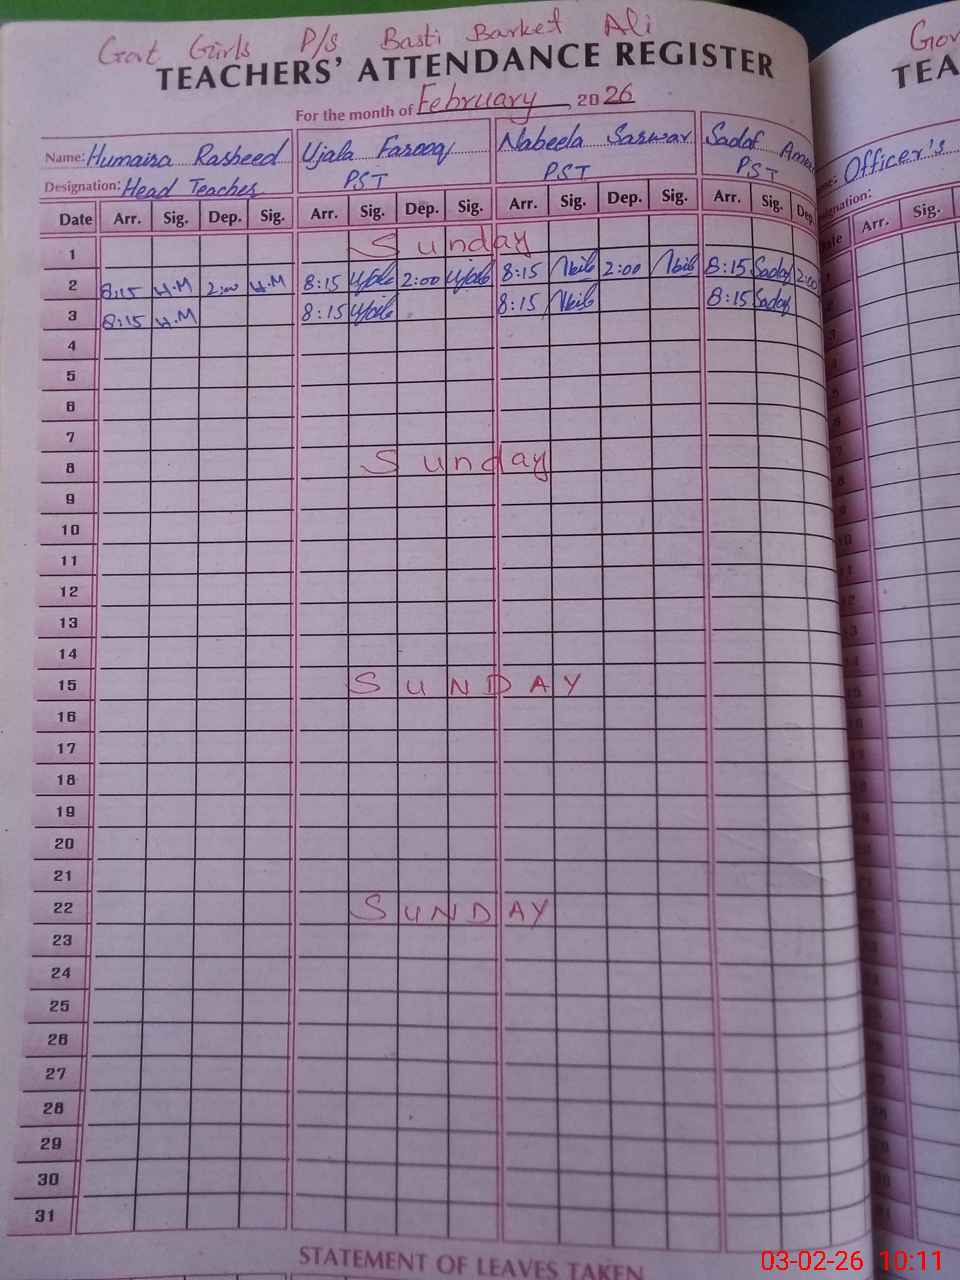 Govt Girls P/S Basti Barket Ali
TEACHERS' ATTENDANCE REGISTER
For the month of February, 2026
Name: Humaira Rasheed Ujala Farooq Nabeela Sarwar Sadaf
Designation: Head Teacher PST PST PST
Date Arr. Sig. Dep. Sig. Arr. Sig. Dep. Sig. Arr. Sig. Dep. Sig. Arr. Sig. Dep.
1 Sunday
2 8:15 H.M 2:00 H.M 8:15 Ujala 2:00 Ujala 8:15 2:00 8:15 Sadaf 2:00
3 8:15 H.M 8:15 Ujala 8:15 8:15 Sadaf
4
5
6
7
8 Sunday
9
10
11
12
13
14
15 SUNDAY
16
17
18
19
20
21
22 SUNDAY
23
24
25
26
27
28
29
30
31
STATEMENT OF LEAVES TAKEN
Gov
TEA
Officer's
Arr. Sig.
03-02-26 10:11